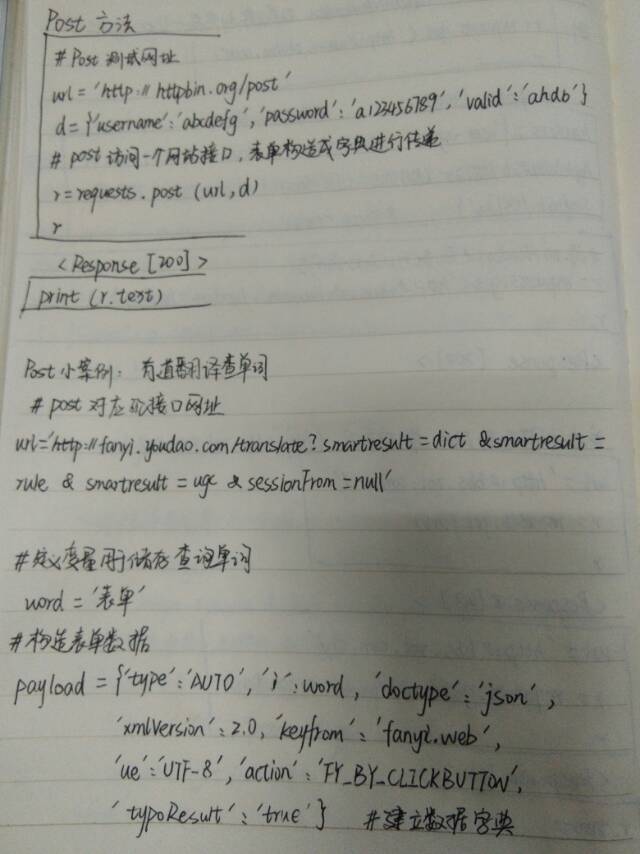 Post 方法
# Post 测试网址
url = 'http://httpbin.org/post'
d = {'username':'abcdefg','password':'a123456789','valid':'ahdb'}
# post 访问一个网站接口,表单构造成字典进行传递
r=requests.post (url,d)
r
<Response [200]>
print (r.text)
Post小案例: 有道翻译查单词
# post 对应的接口网址
url='http://fanyi.youdao.com/translate? smartresult = dict & smartresult =
rule & smartresult = ugc & sessionFrom = null'
#定义变量用于储存查询单词
word = '表单'
#构造表单数据
payload = {'type':'AUTO','i':word,'doctype':'json',
'xmlVersion':2.0,'keyfrom':'fanyi.web',
'ue':'UTF-8','action':'FY_BY_CLICKBUTTON',
'typoResult':'true'} #建立数据字典